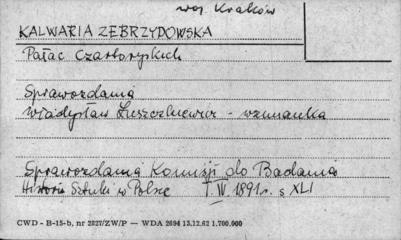 woj. Kraków
KALWARIA ZEBRZYDOWSKA
Pałac Czartoryskich
Sprawozdania
Władysław Łuszczkiewicz - wzmianka
Sprawozdania Komisji do Badania
Historii Sztuki w Polsce T. IV 1891 r. s XLI
CWD - B-15-b, nr 2827/ZW/P — WDA 2694 13.12.62 1.700.000